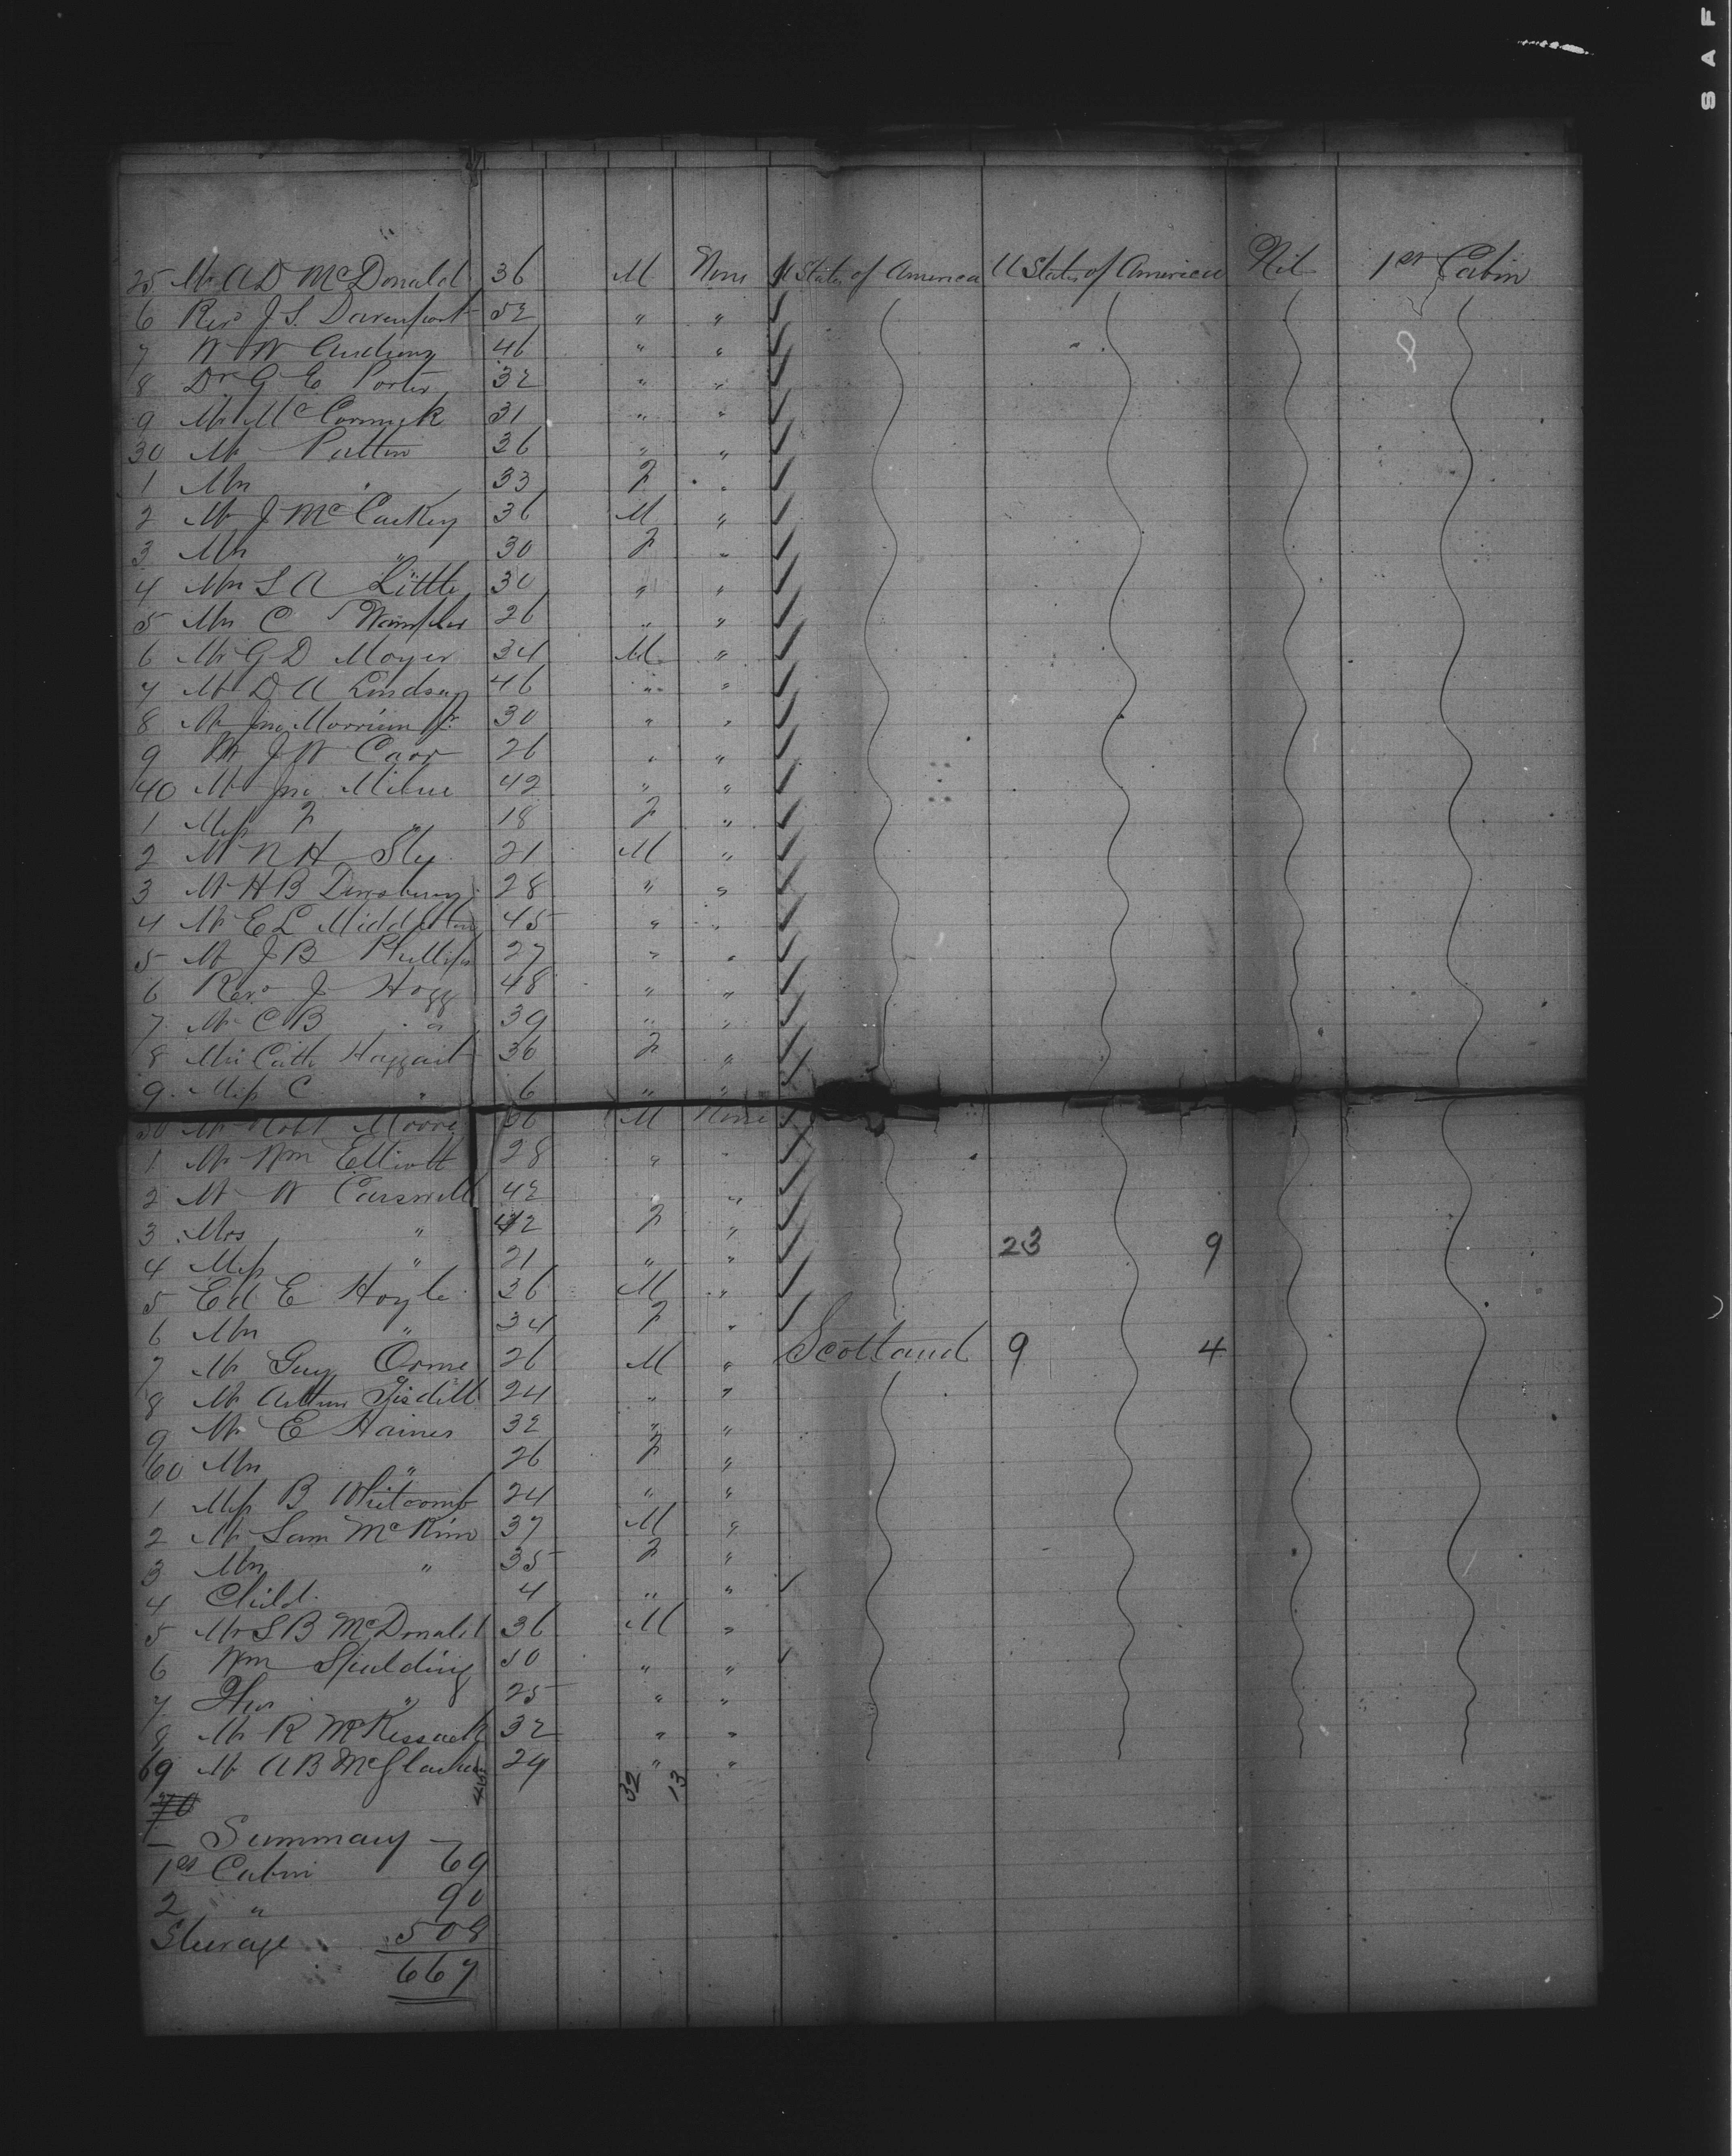 S A F
25 Mr A D McDonald 36 M None U States of America U States of America Nil 1st Cabin
6 Revd J. S. Davenport 52 " "
7 W W 46 " "
8 Dr G E Porter 32 " "
9 Mr McCormick 31 " "
30 Mr Patton 36 " "
1 Mrs " 33 F "
2 Mr J McCaskey 36 M "
3 Mrs " 30 F "
4 Mrs S A Little 30 " "
5 Mrs C Wampler 26 " "
6 Mr G D Moyer 34 M "
7 Mr D A Lindsay 46 " "
8 Mr Jno Morrison Jr 30 " "
9 Mr J W Carr 26 " "
40 Mr Jno Milne 42 " "
1 Miss F " 18 F "
2 Mr N H Sly 21 M "
3 Mr H B 28 " "
4 Mr E L Middleton 45 " "
5 Mr J B Phillips 27 " "
6 Revd J Hogg 48 " "
7 Mr C B " 39 " "
8 Mrs Cath Haggart 36 F "
9 Miss C " 6 " "
50 Mr Robt Moore 36 M None
1 Mr Wm Elliott 28 " "
2 Mr W Carswell 42 " "
3 Mrs " 42 F " 23 9
4 Miss " 21 " "
5 Ed E Hoyle 36 M "
6 Mrs " 34 F "
7 Mr Guy Orme 26 M " Scotland 9 4
8 Mr Arthur Tisdell 24 " "
9 Mr E Haines 32 " "
60 Mrs " 26 F "
1 Miss B Whitcomb 24 " "
2 Mr Sam McKim 37 M "
3 Mrs " 35 F "
4 Child 4 " "
5 Mr S B McDonald 36 M "
6 Wm Spalding 50 " "
7 " 25 " "
8 Mr R McKissack 32 " "
69 Mr A B McGlashan 24 " "
70 45 32 13
— Summary —
1st Cabin 69
2 " 90
Steerage 508
667